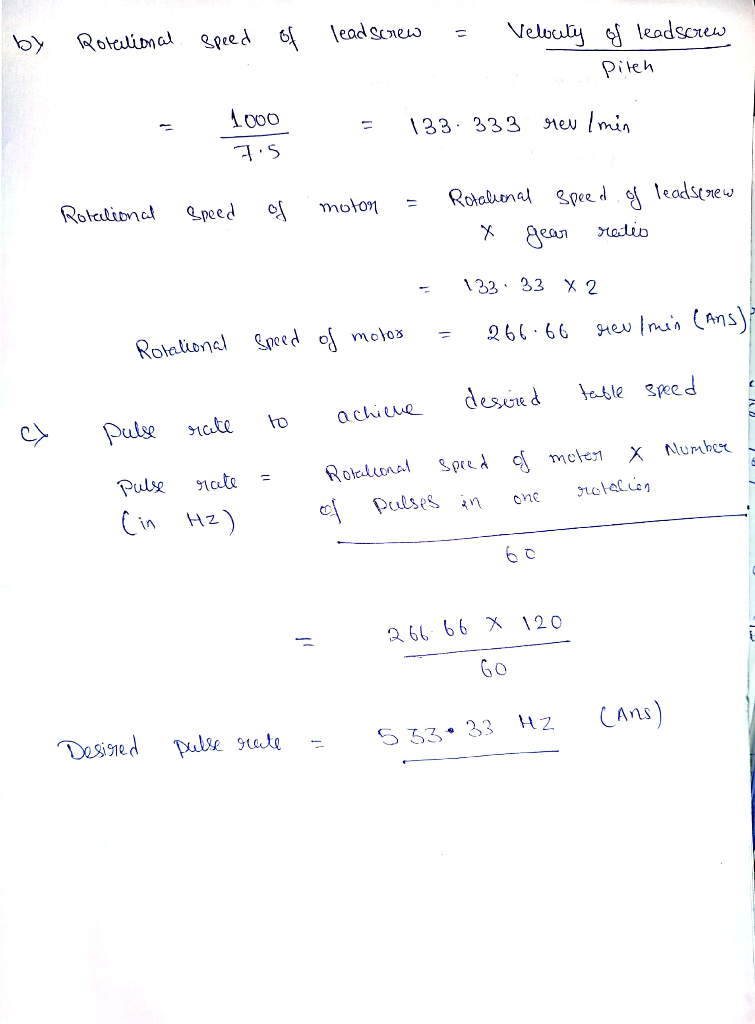 b) Rotational speed of leadscrew = Velocity of leadscrew
Pitch
= 1000 = 133.333 rev/min
7.5
Rotational speed of motor = Rotational speed of leadscrew
x gear ratio
= 133.33 x 2
Rotational speed of motor = 266.66 rev/min (Ans)
c) Pulse rate to achieve desired table speed
Pulse rate = Rotational speed of motor x Number
(in Hz) of pulses in one rotation
60
= 266.66 x 120
60
Desired pulse rate = 533.33 Hz (Ans)